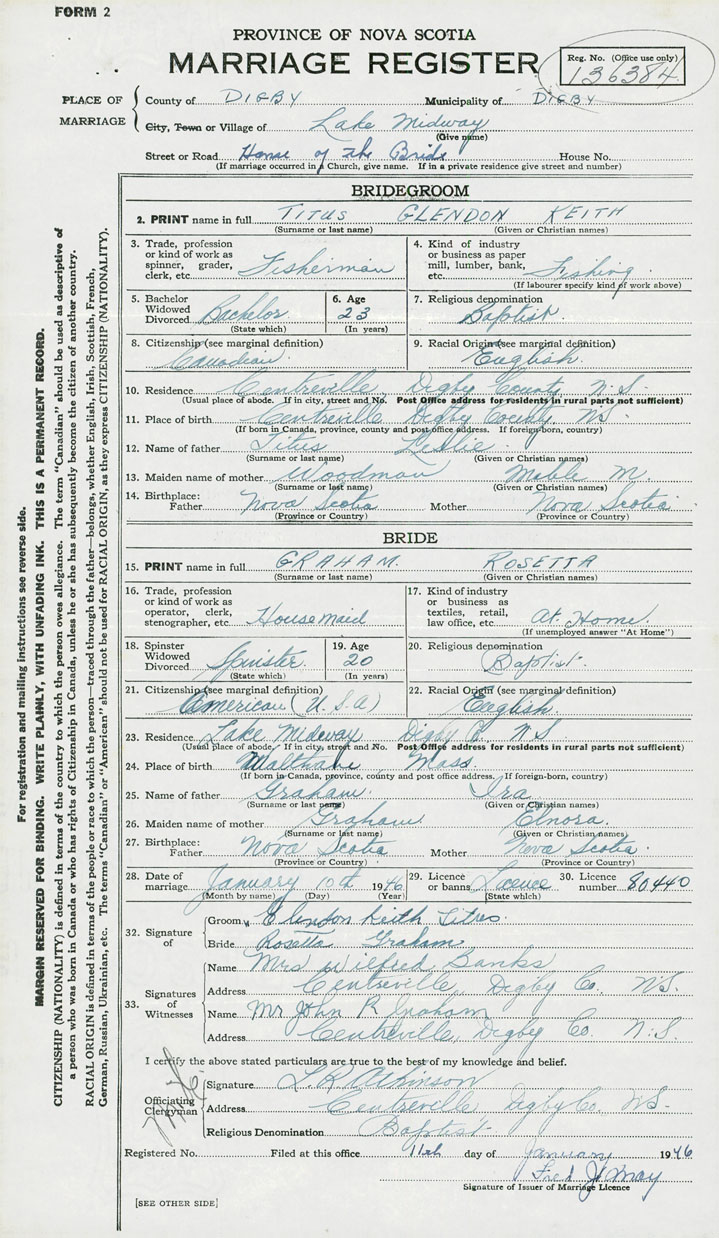 FORM 2
PROVINCE OF NOVA SCOTIA
MARRIAGE REGISTER
Reg. No. (Office use only)
136384
PLACE OF MARRIAGE
County of DIGBY Municipality of DIGBY
City, Town or Village of Lake Midway
(Give name)
Street or Road Home of the Bride House No.
(If marriage occurred in a Church, give name. If in a private residence give street and number)
BRIDEGROOM
2. PRINT name in full TITUS GLENDON KEITH
(Surname or last name) (Given or Christian names)
3. Trade, profession or kind of work as spinner, grader, clerk, etc. Fisherman
4. Kind of industry or business as paper mill, lumber, bank, etc. Fishing
(If labourer specify kind of work above)
5. Bachelor Widowed Divorced Bachelor (State which)
6. Age 23 (In years)
7. Religious denomination Baptist
8. Citizenship (see marginal definition) Canadian
9. Racial Origin (see marginal definition) English
10. Residence Centreville Digby County N.S.
(Usual place of abode. If in city, street and No. Post Office address for residents in rural parts not sufficient)
11. Place of birth Centreville Digby County NS
(If born in Canada, province, county and post office address. If foreign-born, country)
12. Name of father Titus Leslie
(Surname or last name) (Given or Christian names)
13. Maiden name of mother Woodman Mable M.
(Surname or last name) (Given or Christian names)
14. Birthplace: Father Nova Scotia Mother Nova Scotia
(Province or Country) (Province or Country)
BRIDE
15. PRINT name in full GRAHAM. ROSETTA
(Surname or last name) (Given or Christian names)
16. Trade, profession or kind of work as operator, clerk, stenographer, etc. Housemaid
17. Kind of industry or business as textiles, retail, law office, etc. At Home.
(If unemployed answer "At Home")
18. Spinster Widowed Divorced Spinster (State which)
19. Age 20 (In years)
20. Religious denomination Baptist.
21. Citizenship (see marginal definition) American (U.S.A)
22. Racial Origin (see marginal definition) English.
23. Residence Lake Midway Digby Co. N.S
(Usual place of abode. If in city, street and No. Post Office address for residents in rural parts not sufficient)
24. Place of birth Mass.
(If born in Canada, province, county and post office address. If foreign-born, country)
25. Name of father Graham. Ira
(Surname or last name) (Given or Christian names)
26. Maiden name of mother Graham Elnora
(Surname or last name) (Given or Christian names)
27. Birthplace: Father Nova Scotia Mother Nova Scotia
(Province or Country) (Province or Country)
28. Date of marriage January 10th 1946
(Month by name) (Day) (Year)
29. Licence or banns Licence (State which)
30. Licence number 80440
32. Signature of
Groom Glendon Keith Titus
Bride Rosetta Graham
33. Signatures of Witnesses
Name Mrs Wilfred Banks
Address Centreville, Digby Co. N.S.
Name Mr John R Graham
Address Centreville, Digby Co. N.S.
I certify the above stated particulars are true to the best of my knowledge and belief.
Officiating Clergyman
Signature L.R. Atkinson
Address Centreville Digby Co. NS.
Religious Denomination Baptist
Registered No. Filed at this office 11th day of January 1946
Fred J May
Signature of Issuer of Marriage Licence
[SEE OTHER SIDE]
For registration and mailing instructions see reverse side.
MARGIN RESERVED FOR BINDING. WRITE PLAINLY, WITH UNFADING INK. THIS IS A PERMANENT RECORD.
CITIZENSHIP (NATIONALITY) is defined in terms of the country to which the person owes allegiance. The term "Canadian" should be used as descriptive of
a person who was born in Canada or who has rights of Citizenship in Canada, unless he or she has subsequently become the citizen of another country.
RACIAL ORIGIN is defined in terms of the people or race to which the person—traced through the father—belongs, whether English, Irish, Scottish, French,
German, Russian, Ukrainian, etc. The terms "Canadian" or "American" should not be used for RACIAL ORIGIN, as they express CITIZENSHIP (NATIONALITY).